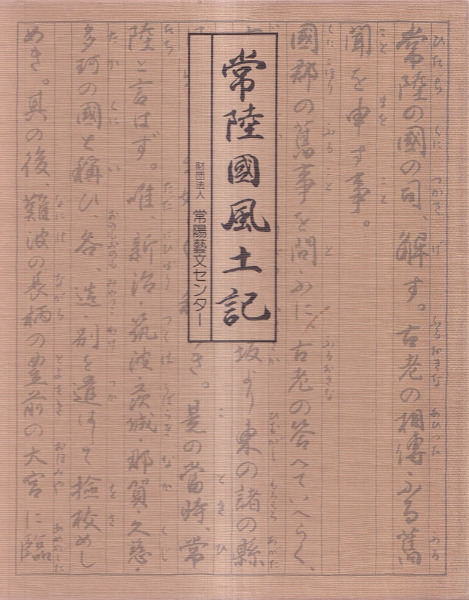 常陸國風土記
財団法人 常陽藝文センター
常陸の國の司、解す。古老の相傳ふる舊
聞を申す事。
國郡の舊事を問ふに、古老の答へていへらく、
坂より東の諸の縣
き。是の當時、常
陸と言はず。唯、新治・筑波・茨城・那賀・久慈・
多珂の國と稱ひ、各、造・別を遣はして檢校めし
めき。其の後、難波の長柄の豊前の大宮に臨